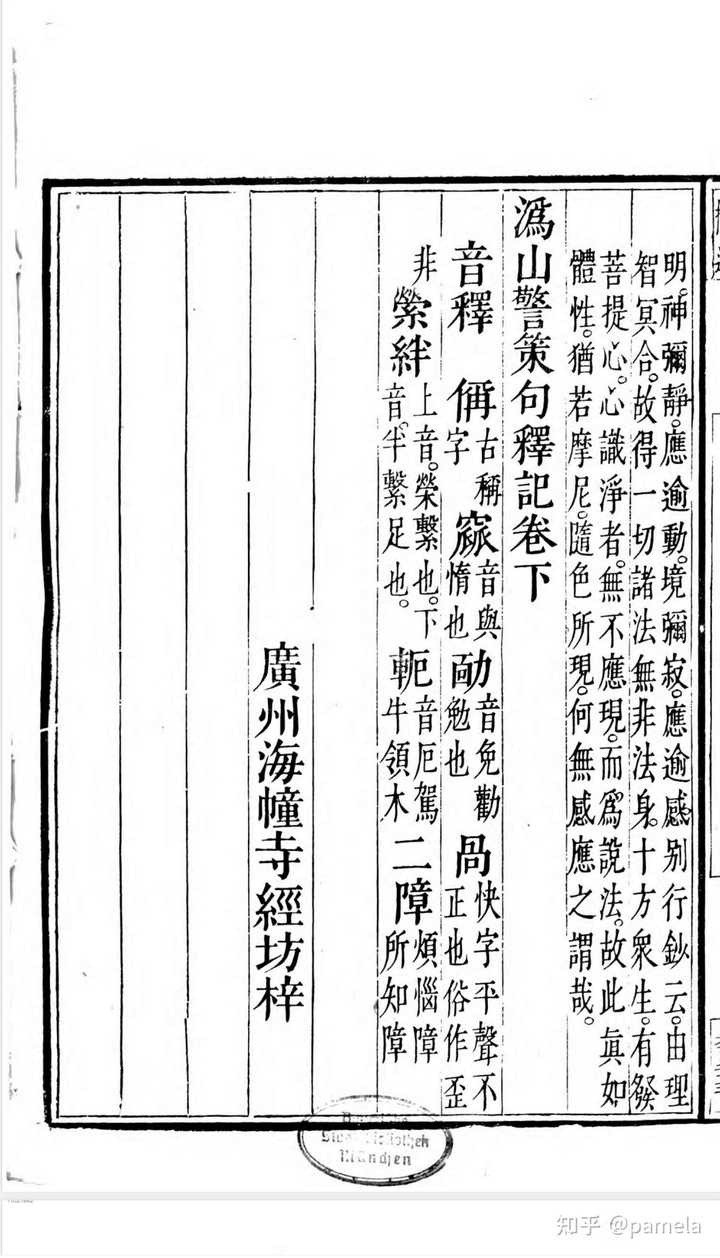 明。神彌靜。應逾動。境彌寂。應逾感。别行鈔云。由理
智冥合。故得一切諸法無非法身。十方衆生。有發
菩提心。心識淨者。無不應現。而爲說法。故此眞如
體性。猶若摩尼。隨色所現。何無感應之謂哉。
溈山警策句釋記卷下
音釋 偁古稱字 窳音與惰也 勔音免勸勉也 咼快字平聲不正也俗作歪
非 縈絆上音。榮繫也。下音。半繫足也。 軛音厄駕牛領木 二障煩惱障所知障
廣州海幢寺經坊梓
München
知乎 @pamela